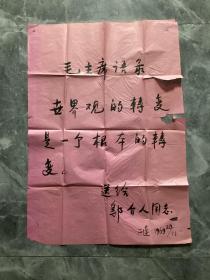 毛主席语录
世界观的转变
是一个根本的转
变。
送给
邹介人同志
1969